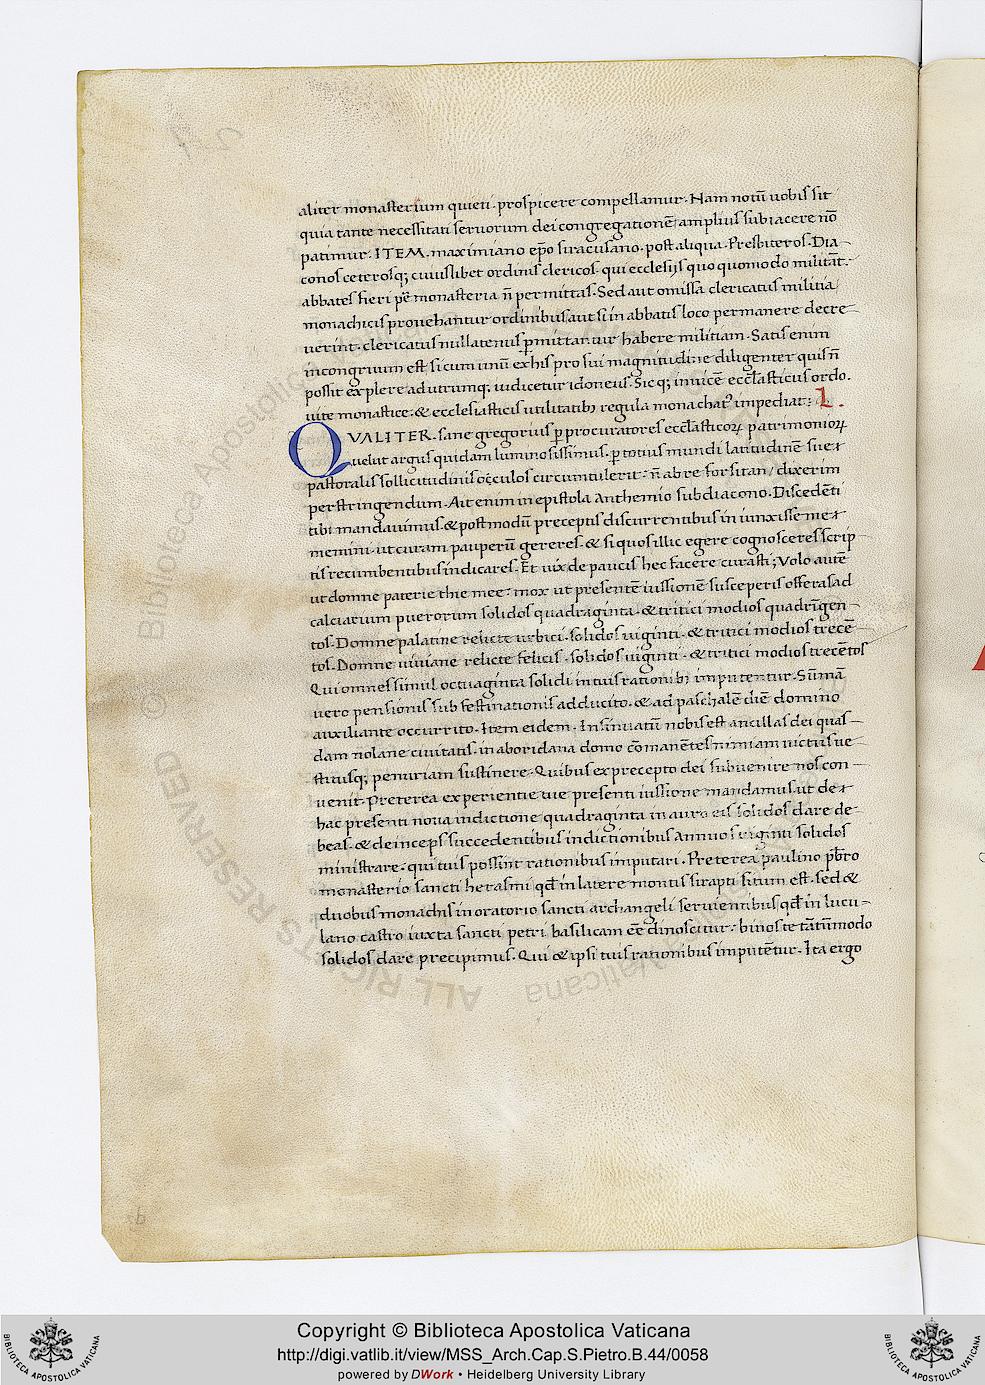 aliter monasterium quieti. prospicere compellamur. Nam notū uobis sit
quia tante necessitati seruorum dei congregationē amplius subiacere nō
patimur. ITEM. maximiano ep̄o siracusano. post aliqua. Presbiteros. Dia-
conos ceterosq; cuiuslibet ordinis clericos. qui ecclesijs quo quomodo militāt.
abbates fieri pẽ monasteria n̄ permittas. Sed aut omissa clericatus militia
monachicis prouehantur ordinibus aut si in abbatis loco permanere decre-
uerint. clericatus nullatenus ꝑmittantur habere militiam. Satis enim
incongruum est si cum unū ex his pro sui magnitudine diligenter quis n̄
possit explere ad utrumq; iudicetur idoneus. Sicq; inuicē eccl̄asticus ordo.
uite monastice. & ecclesiasticis utilitatibꝫ regula monachatꝰ impediat:. L.
QVALITER. sane gregorius ꝑ procuratores eccl̄asticoꝝ patrimonioꝝ
uelut argus quidam luminosissimus. ꝑ totius mundi latitudinē sue
pastoralis sollicitudinis occulos circumtulerit. n̄ ab re forsitan dixerim
perstringendum. Ait enim in epistola Anthemio subdiacono. Discedēti
tibi mandauimus. & postmodū preceptis discurrentibus in iunxisse me
memini. ut curam pauperū gereres. & si quos illic egere cognosceres scrip-
tis recumbentibus indicares. Et uix de paucis hec facere curasti; Volo autē
ut domne paterie thie mee. mox ut presentē iussionē susceperis offeras ad
calciarium puerorum solidos quadraginta. & tritici modios quadrīgen-
tos. Domne palatine relicte urbici. solidos uiginti. & tritici modios trecē-
tos. Domne uiuiane relicte felicis. solidos uiginti. & tritici modios trecētos
Qui omnes simul octuaginta solidi in tuis rationibꝫ imputentur. Sūmā
uero pensionis sub festinationis adducito. & ad paschalē diē domino
auxiliante occurrito. Item eidem. Insinuatū nobis est ancillas dei quas-
dam nolane ciuitatis. in aboridana domo cōmanētes nimiam uictus ue-
stitusq; penuriam sustinere. Quibus ex precepto dei subuenire nos con-
uenit. Preterea experientie tue presenti iussione mandamus ut de
hac presenti noua indictione quadraginta in auro eis solidos dare de-
beas. & deinceps succedentibus indictionibus annuos uiginti solidos
ministrare. qui tuis possint rationibus imputari. Preterea paulino pb̄ro
monasterio sancti herasmi qđ in latere montis sirapti situm est. sed &
duobus monachis in oratorio sancti archangeli seruientibus qđ in lucu-
lano castro iuxta sancti petri basilicam eē dinoscitur. binos te tātūmodo
solidos dare precipimus. Qui & ipsi tuis rationibus imputētur. Ita ergo
ALL RIGHTS RESERVED © Biblioteca Apostolica Vaticana
Copyright © Biblioteca Apostolica Vaticana
http://digi.vatlib.it/view/MSS_Arch.Cap.S.Pietro.B.44/0058
powered by DWork • Heidelberg University Library
BIBLIOTECA APOSTOLICA VATICANA
BIBLIOTECA APOSTOLICA VATICANA